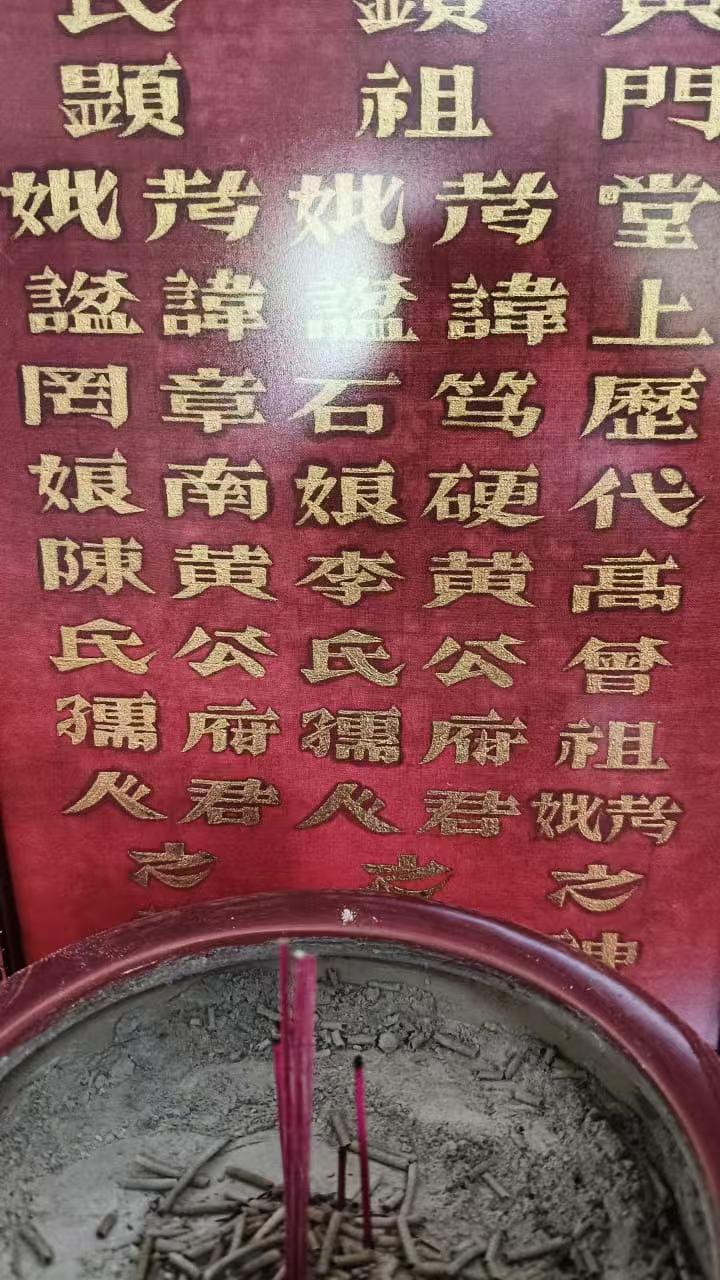 門堂上歷代髙曾祖考妣之神
顯祖
考諱笃硬黄公府君
妣諡石娘李氏孺人
之
顯
考諱章南黄公府君
妣諡罔娘陳氏孺人
之